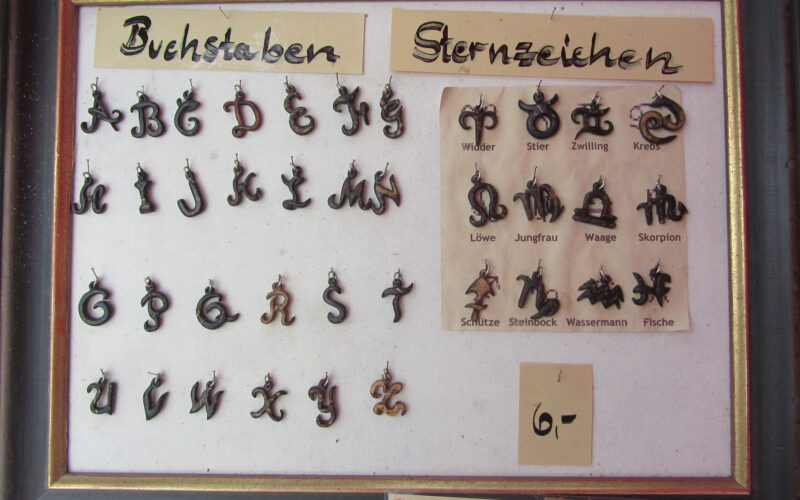 Buchstaben
Sternzeichen
A B C D E F G
H I J K L M N
O P Q R S T
U V W X Y Z
Widder Stier Zwilling Krebs
Löwe Jungfrau Waage Skorpion
Schütze Steinbock Wassermann Fische
6,-